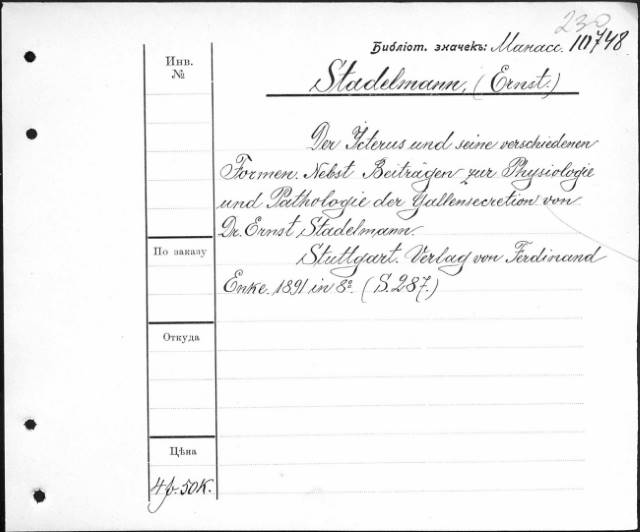 230
Библіот. значекъ: Манасс. 10748
Инв.
№
Stadelmann, (Ernst.)
Der Icterus und seine verschiedenen
Formen. Nebst Beiträgen zur Physiologie
und Pathologie der Gallensecretion von
Dr. Ernst Stadelmann.
По заказу
Stuttgart. Verlag von Ferdinand
Enke. 1891 in 8º. (S. 287.)
Откуда
Цѣна
4 р. 50 К.